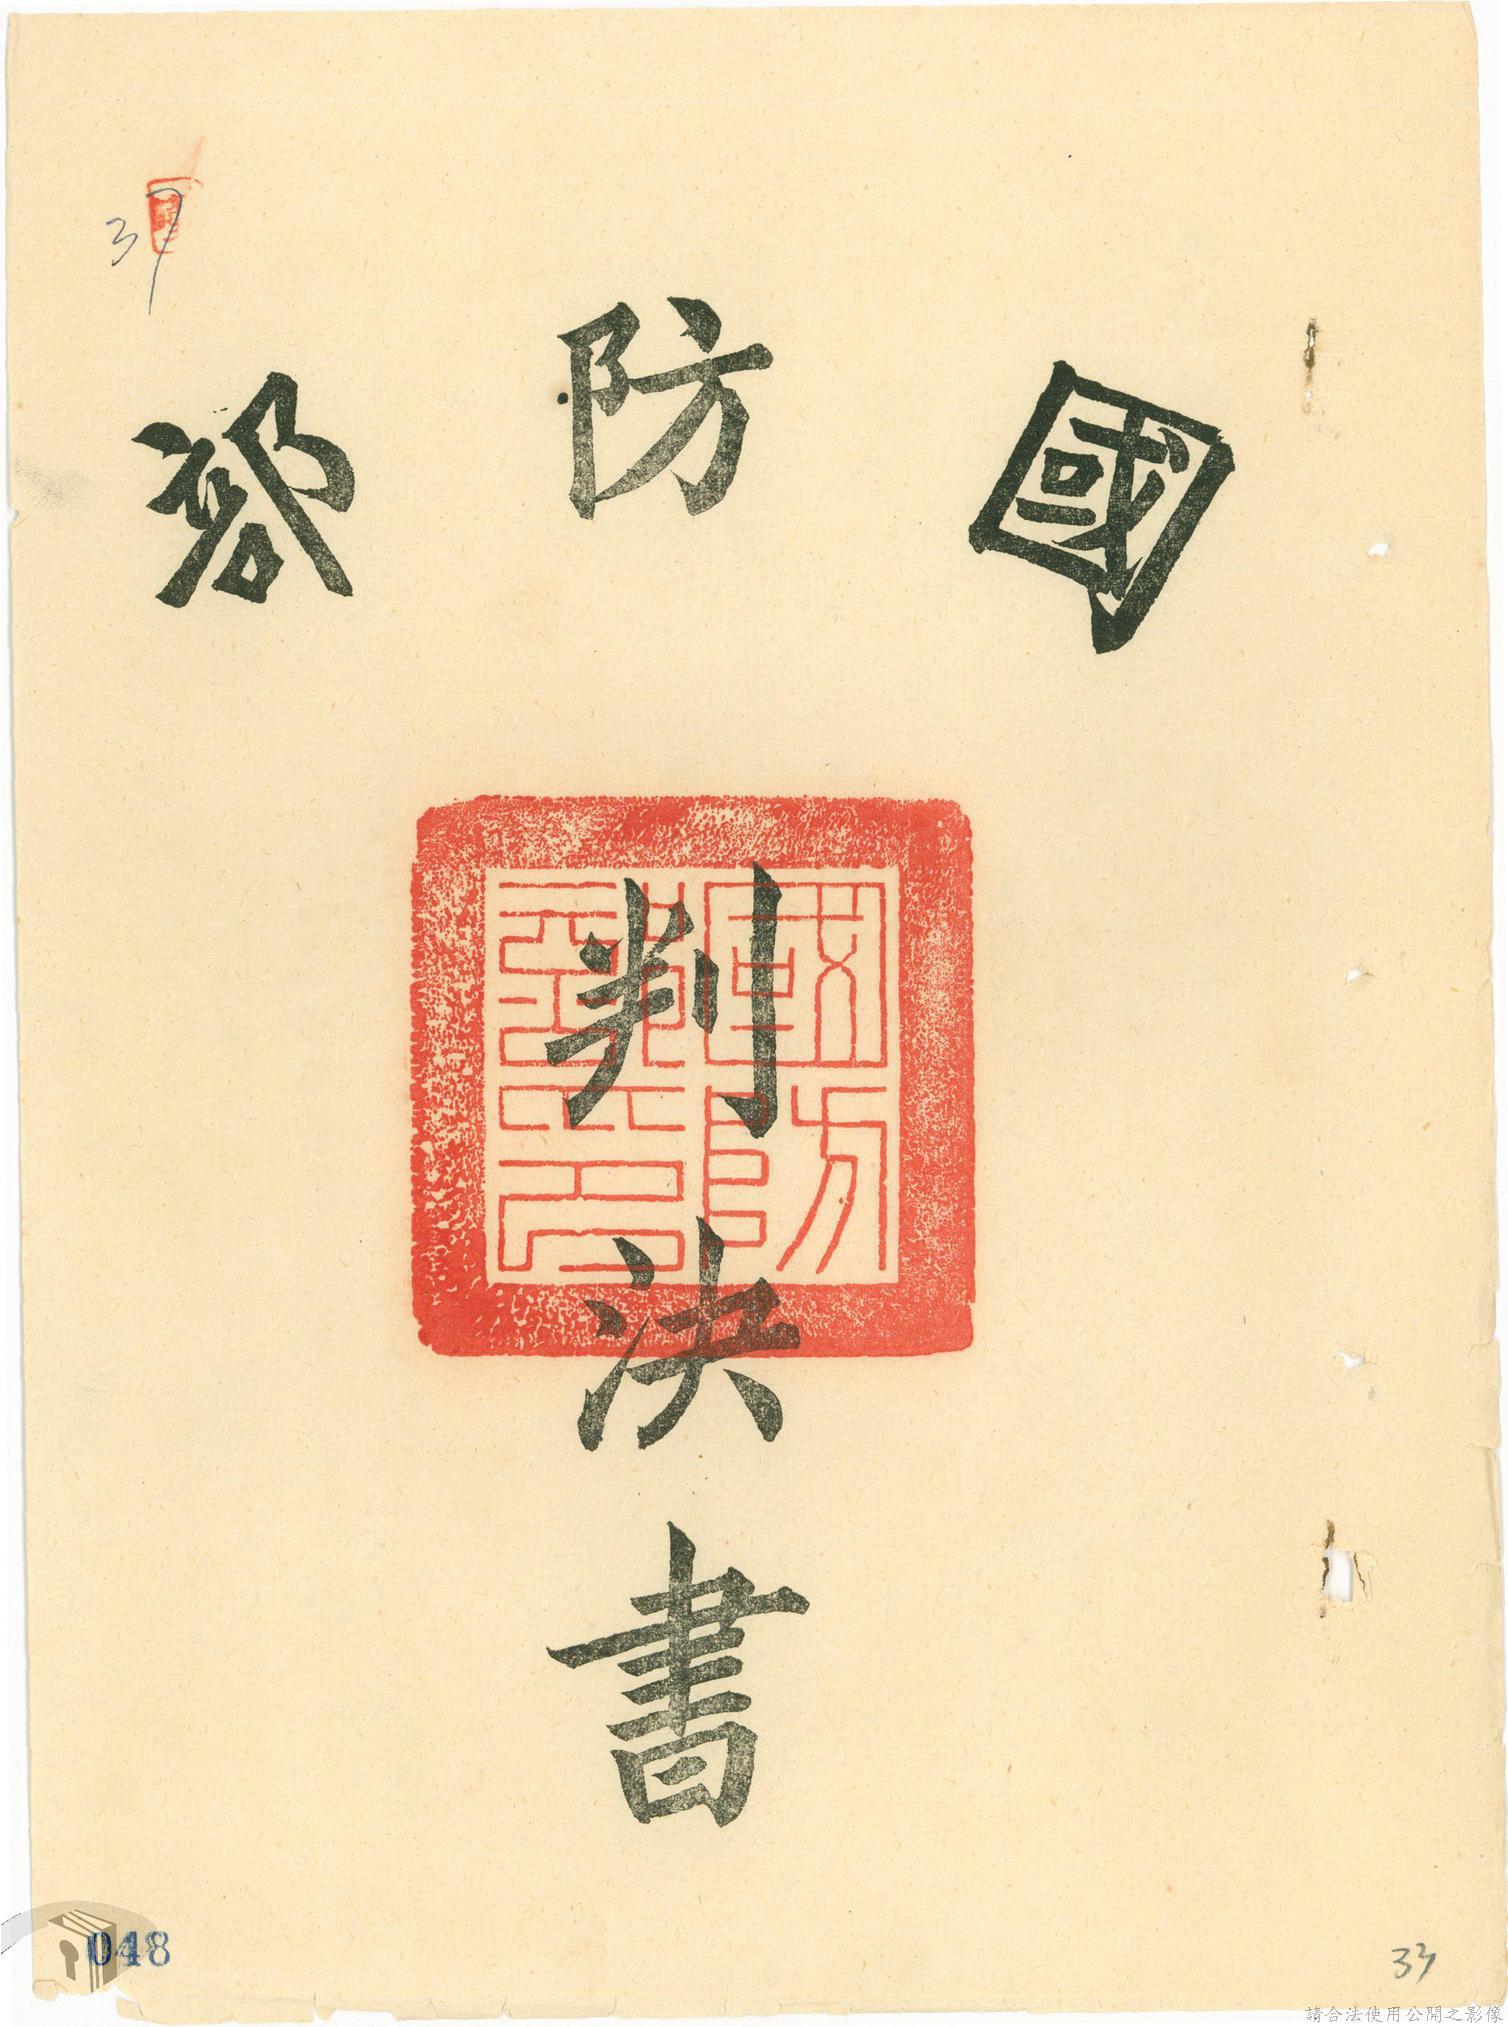 37
國防部
判決書
國防部印
048
33
請合法使用公開之影像